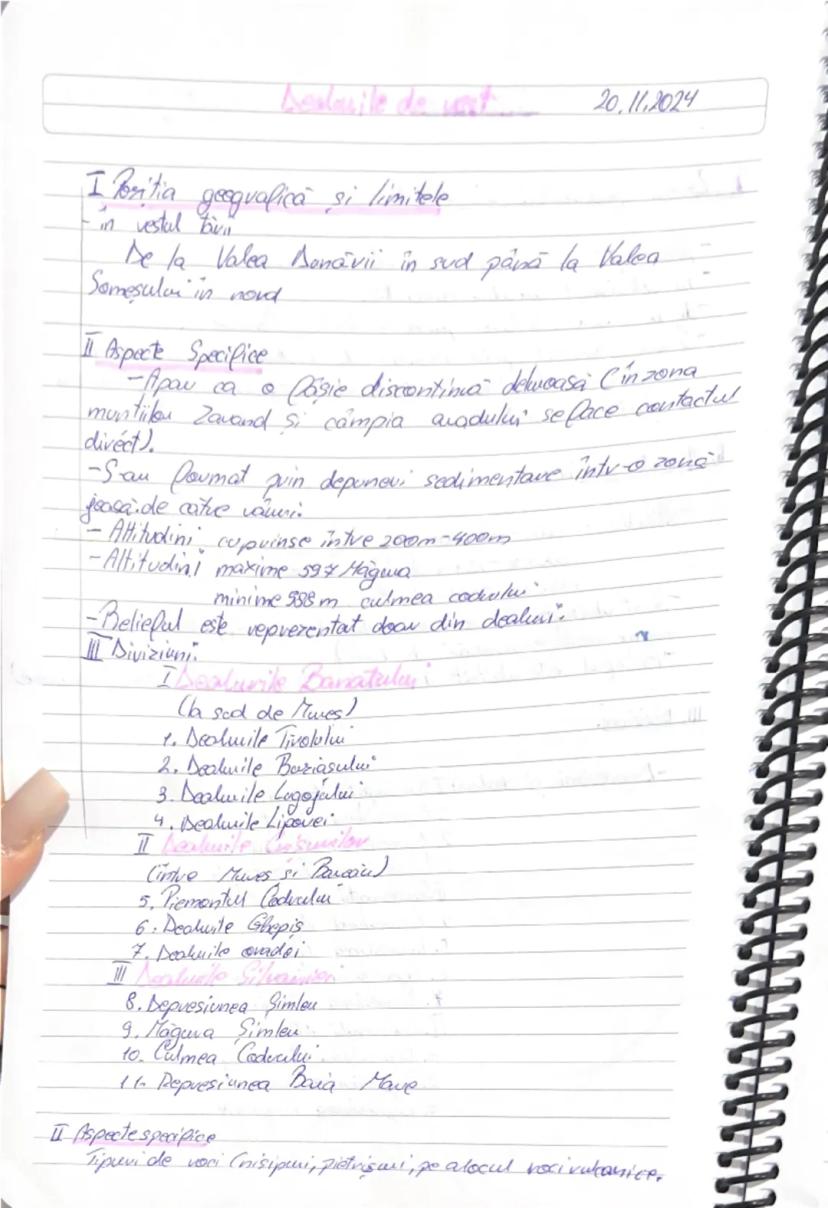 Dealurile de vest 20.11.2024
I Poziția geografică și limitele
- în vestul țării
De la Valea Dunării în sud până la Valea
Someșului în nord
II Aspecte Specifice
- Apar ca o fâșie discontinuă deluroasă (în zona
munților Zarand și câmpia aradului se face contactul
direct).
- S-au format prin depuneri sedimentare într-o zonă
joasă de către râuri.
- Altitudini cuprinse între 200m-400m
- Altitudini maxime 597 Măgura
minime m culmea codrului
- Relieful este reprezentat doar din dealuri.
III Diviziuni.
I Dealurile Banatului
(la sud de Mureș)
1. Dealurile Tirolului
2. Dealurile Buziașului
3. Dealurile Lugojului
4. Dealurile Lipovei
II Dealurile Crișurilor
(între Mureș și Barcău)
5. Piemontul Codrului
6. Dealurile Ghepiș
7. Dealurile oradei
III Dealurile Silvaniei
8. Depresiunea Șimleu
9. Măgura Șimleu
10. Culmea Codrului
11. Depresiunea Baia Mare
II Aspecte specifice
Tipuri de roci (nisipuri, pietrișuri, pe alocul roci vulcanice.